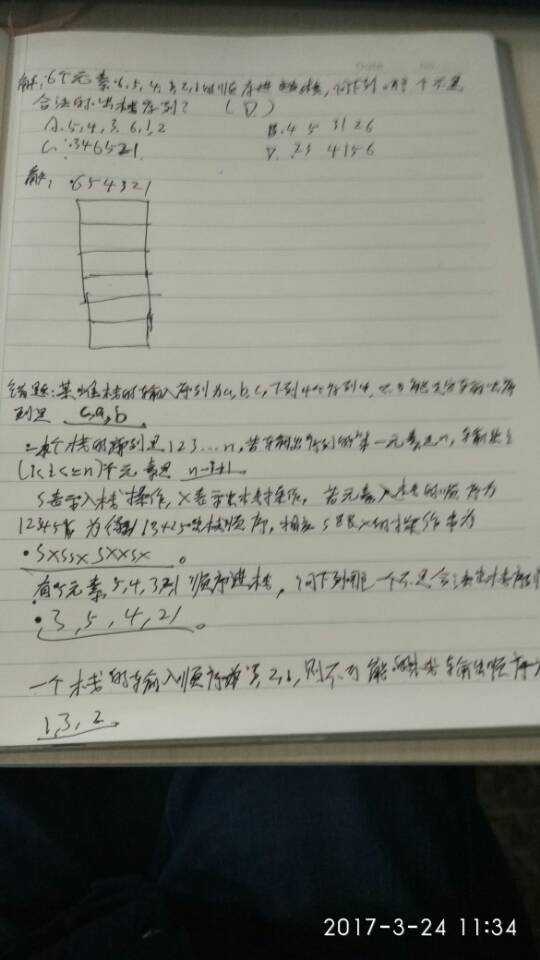 解:6个元素 6,5,4,3,2,1的顺序进栈,问下列哪个不是
合法的出栈序列?(D)
A.5,4,3,6,1,2 B.4 5 3 1 2 6
C.346521 D. 23 4156
解: 654321
错题:某堆栈的输入序列为a,b,c,下列4个序列中,不可能是它的输出序
列是 c,a,b
一个栈的序列是123...n,若输出序列的第一元素是n,输出第i
(1<=i<=n)个元素是 n-i+1
S表示入栈操作,X表示出栈操作,若元素入栈的顺序为
1234 为得到1342出栈顺序,相应S和X的操作串为
SXSSXSXX
有 元素,5,4,3,2,1顺序进栈,问下列哪一个不是合法出栈序列
3,5,4,21
一个栈的输入顺序 3,2,1,则不可能 输出顺序
1,3,2
2017-3-24 11:34